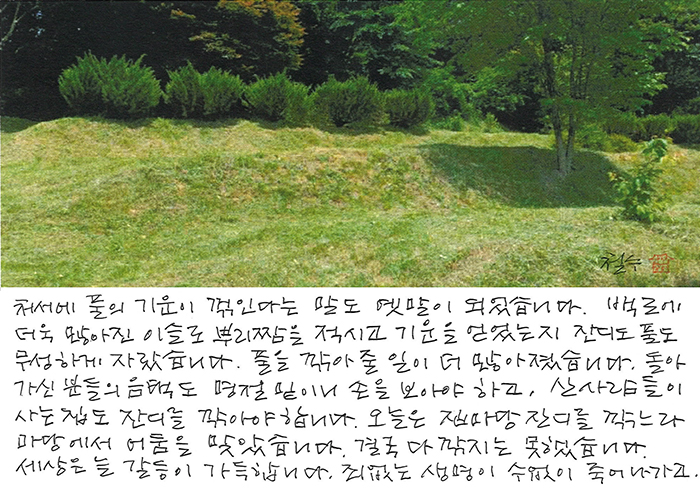 철수
처서에 풀의 기운이 꺾인다는 말도 옛말이 되었습니다. 백로에
더욱 많아진 이슬로 뿌리짬을 적시고 기운을 얻었는지 잔디도 풀도
무성하게 자랐습니다. 풀을 깎아 줄 일이 더 많아졌습니다. 돌아
가신 분들의 음택도 명절 밑이니 손을 보아야 하고, 산 사람들이
사는 집도 잔디를 깎아야 합니다. 오늘은 집마당 잔디를 깎느라
마당에서 어둠을 맞았습니다. 결국 다 깎지는 못하였습니다.
세상은 늘 갈등이 가득합니다. 죄없는 생명이 수없이 죽어나가고.